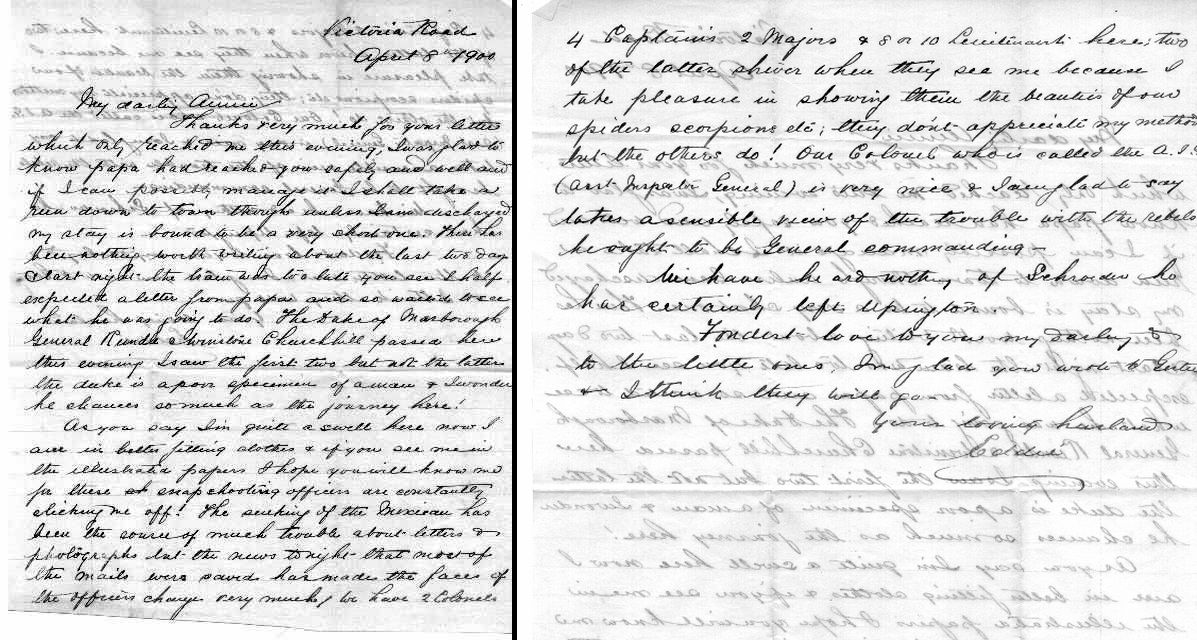 Victoria Road
April 8th 1900
My darling Annie
Thanks very much for your letter
which only reached me this evening, I was glad to
know papa had reached you safely and well and
if I can possibly manage it I shall take a
run down to town though unless I am discharged
my stay is bound to be a very short one. There has
been nothing worth writing about the last two days
& last night the train was too late you see I half
expected a letter from papa and so waited to see
what he was going to do. The Duke of Marborough
General Rundle & Winston Churchhill passed here
this evening I saw the first two but not the latter
the duke is a poor specimen of a man & I wonder
he chances so much as the journey here!
As you say I'm quite a swell here now I
am in better fitting clothes & if you see me in
the illustrated papers I hope you will know me
for these snapshooting officers are constantly
clicking me off! The sinking of the Mexican has
been the source of much trouble about letters &
photographs but the news tonight that most of
the mails were saved has made the faces of
the officers change very much, we have 2 Colonels
4 Captains 2 Majors & 8 or 10 Lieutenants here; two
of the latter shiver when they see me because I
take pleasure in showing them the beauties of our
spiders scorpions etc; they don't appreciate my method
but the others do! Our Colonel who is called the A.I.G
(asst Inspector General) is very nice & I am glad to say
takes a sensible view of the trouble with the rebels
he ought to be General commanding —
We have heard nothing of Schroeder he
has certainly left Upington.
Fondest love to you my darling &
to the little ones. I'm glad you wrote to
& I think they will
Your loving husband
Eddie